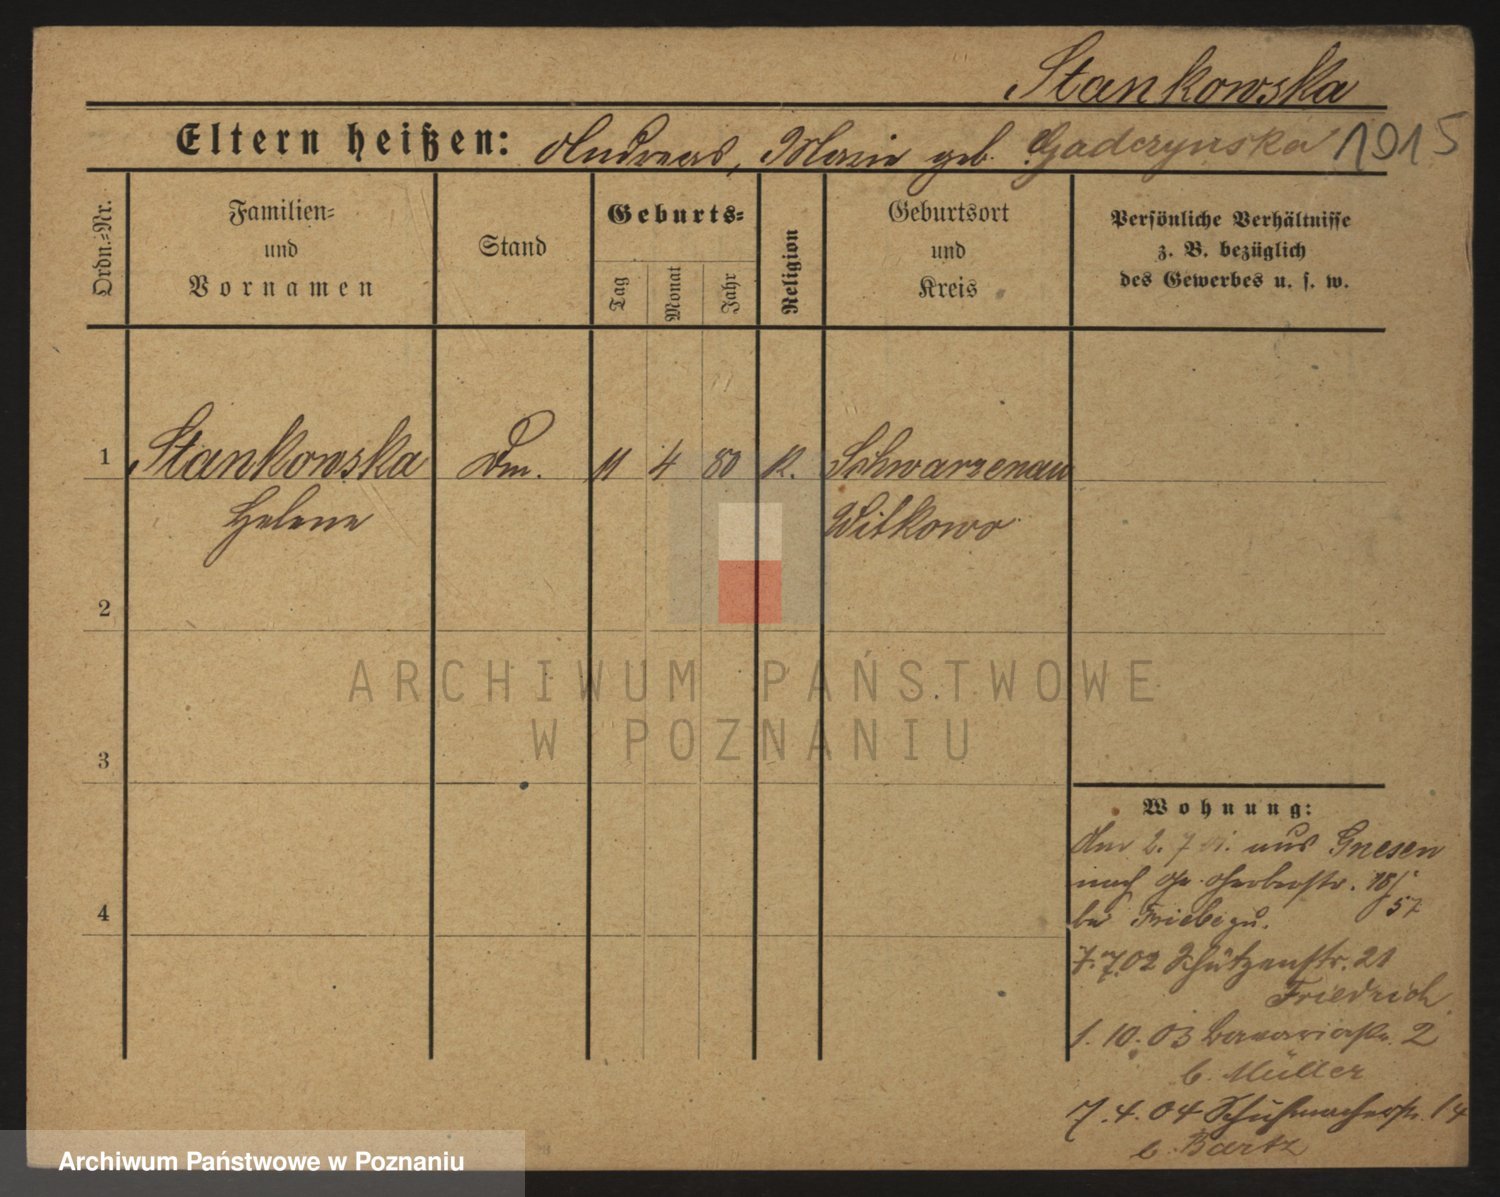 Stankowska
Eltern heißen: Andreas, Marie geb. Gadczynska 1915
Ordn.=Nr.
Familien=
und
Vornamen
Stand
Geburts=
Tag
Monat
Jahr
Religion
Geburtsort
und
Kreis
Persönliche Verhältnisse
z. B. bezüglich
des Gewerbes u. s. w.
1 Stankowska Dm. 11 4 80 K. Schwarzenau
Helene Witkowo
2
ARCHIWUM PAŃSTWOWE
W POZNANIU
3
Wohnung:
2. 7 aus Gnesen
nach Gerberstr. 18/
57
bei
4
7.7.02 Schützenstr. 21
Friedrich
1. 10. 03 2
b. Müller
7. 4. 04 Schuhmacherstr. 14
b. Bartz
Archiwum Państwowe w Poznaniu